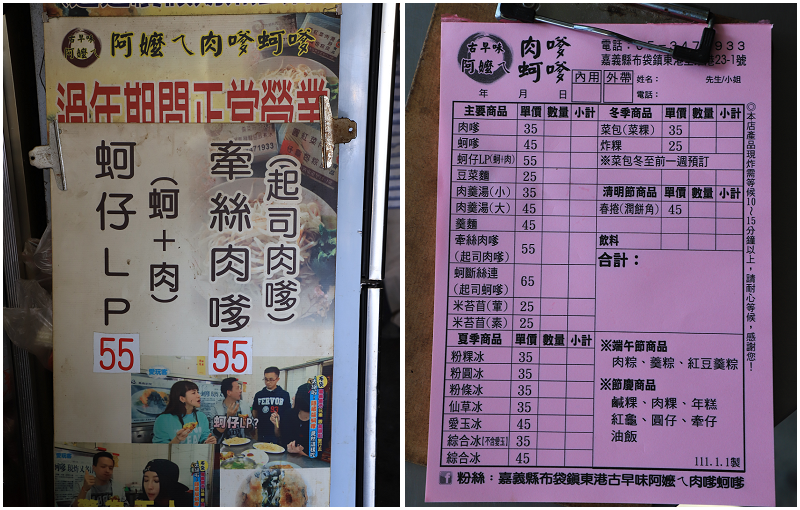 古早味
阿嬤ㄟ
阿嬤ㄟ肉嗲蚵嗲
過年期間正常營業
蚵仔LP
(蚵+肉)
55
牽絲肉嗲
(起司肉嗲)
55
FERVOR
蚵仔LP?
古早味
阿嬤ㄟ
肉嗲
蚵嗲
嘉義縣布袋鎮東港
23-1號
內用 外帶 姓名: 先生/小姐
電話:
年 月 日
主要商品 單價 數量 小計
肉嗲 35
蚵嗲 45
蚵仔LP(蚵+肉) 55
豆菜麵 25
肉羹湯(小) 35
肉羹湯(大) 45
羹麵 45
牽絲肉嗲
(起司肉嗲) 55
蚵斷絲連
(起司蚵嗲) 65
米苔苜(葷) 25
米苔苜(素) 25
夏季商品 單價 數量 小計
粉粿冰 35
粉圓冰 35
粉條冰 35
仙草冰 35
愛玉冰 45
綜合冰(不含愛玉) 35
綜合冰 45
冬季商品 單價 數量 小計
菜包(菜粿) 35
炸粿 25
※菜包冬至前一週預訂
清明節商品 單價 數量 小計
春捲(潤餅角) 45
飲料
合計:
※端午節商品
肉粽、羹粽、紅豆羹粽
※節慶商品
鹹粿、肉粿、年糕
紅龜、圓仔、牽仔
油飯
111.1.1製
◎本店產品現炸需等候10~15分鐘以上,請耐心等候,感謝您!
粉絲:嘉義縣布袋鎮東港古早味阿嬤ㄟ肉嗲蚵嗲